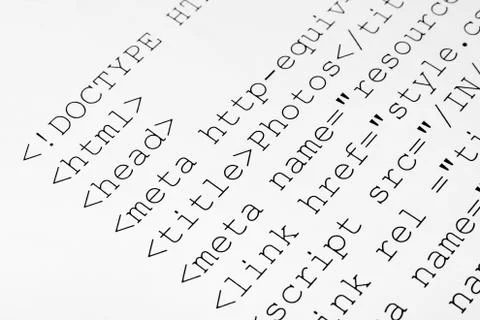 <!DOCTYPE HT
<html>
<head>
<meta http-equiv-
<title>Photos</tit
<meta name="resource
<link href="style.cs
<script src="/IN/
link rel ="ti
a name="
na